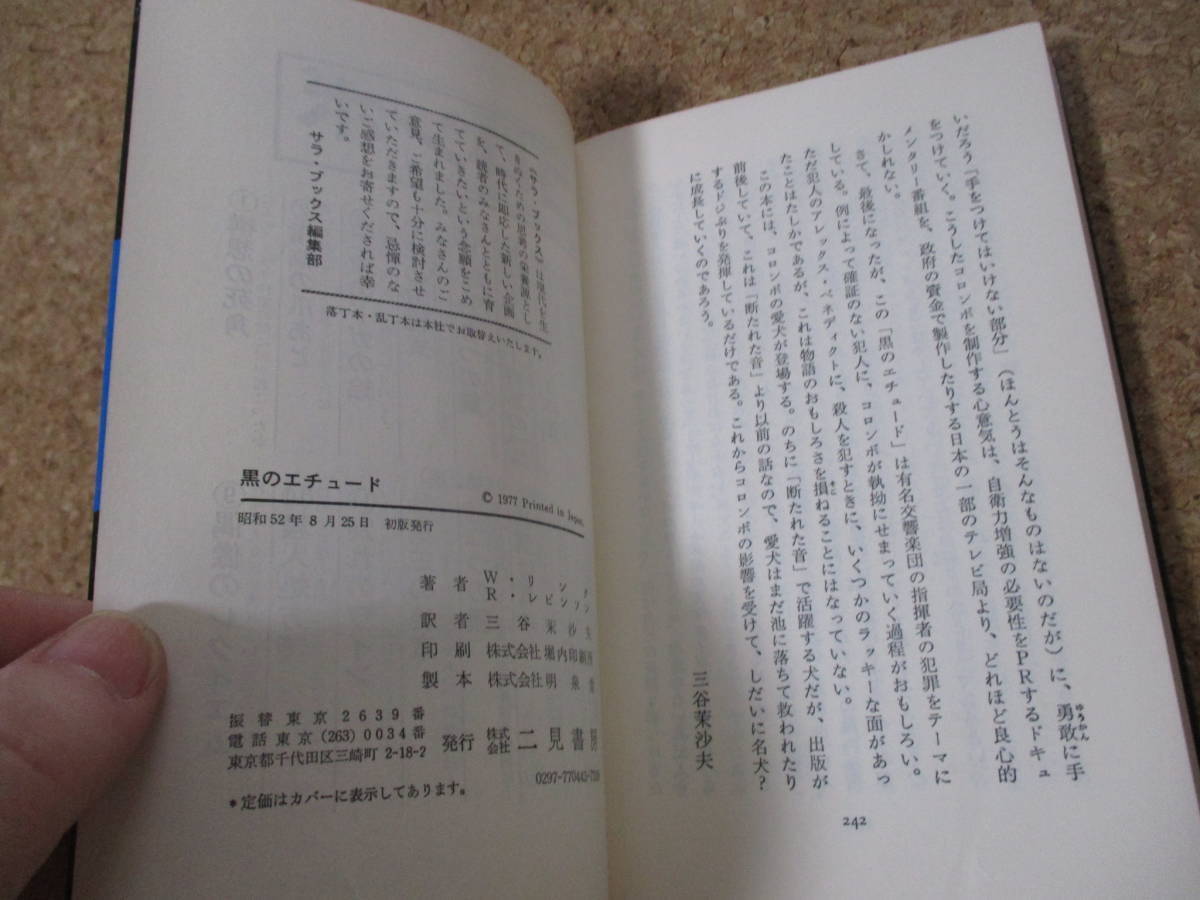 いだろう「手をつけてはいけない部分」（ほんとうはそんなものはないのだが）に、勇敢に手
をつけていく。こうしたコロンボを制作する心意気は、自衛力増強の必要性をPRするドキュ
メンタリー番組を、政府の資金で製作したりする日本の一部のテレビ局より、どれほど良心的
かしれない。
さて、最後になったが、この「黒のエチュード」は有名交響楽団の指揮者の犯罪をテーマに
している。例によって確証のない犯人に、コロンボが執拗にせまっていく過程がおもしろい。
ただ犯人のアレックス・ベネディクトに、殺人を犯すときに、いくつかのラッキーな面があっ
たことはたしかであるが、これは物語のおもしろさを損ねることにはなっていない。
この本には、コロンボの愛犬が登場する。のちに「断たれた音」で活躍する犬だが、出版が
前後していて、これは「断たれた音」より以前の話なので、愛犬はまだ池に落ちて救われたり
するドジぶりを発揮しているだけである。これからコロンボの影響を受けて、しだいに名犬？
に成長していくのであろう。
三谷茉沙夫
242
《サラ・ブックス》は現代を生
きる人のための思考の栄養源とし
て、時代に即応した新しい企画
を、読者のみなさんとともに育
てていきたいという念願をこめ
て生まれました。みなさんのご
意見、ご希望も十分に検討させ
ていただきますので、忌憚のな
いご感想をお寄せくだされば幸
いです。
サラ・ブックス編集部
落丁本・乱丁本は本社でお取替えいたします。
黒のエチュード
© 1977 Printed in Japan.
昭和52年8月25日 初版発行
著者 W・リンク
R・レビンソン
訳者 三谷茉沙夫
印刷 株式会社堀内印刷所
製本 株式会社明泉堂
振替東京2639番
電話東京(263)0034番
東京都千代田区三崎町2-18-2
発行 株式会社 二見書房
0297-770443-7339
＊定価はカバーに表示してあります。